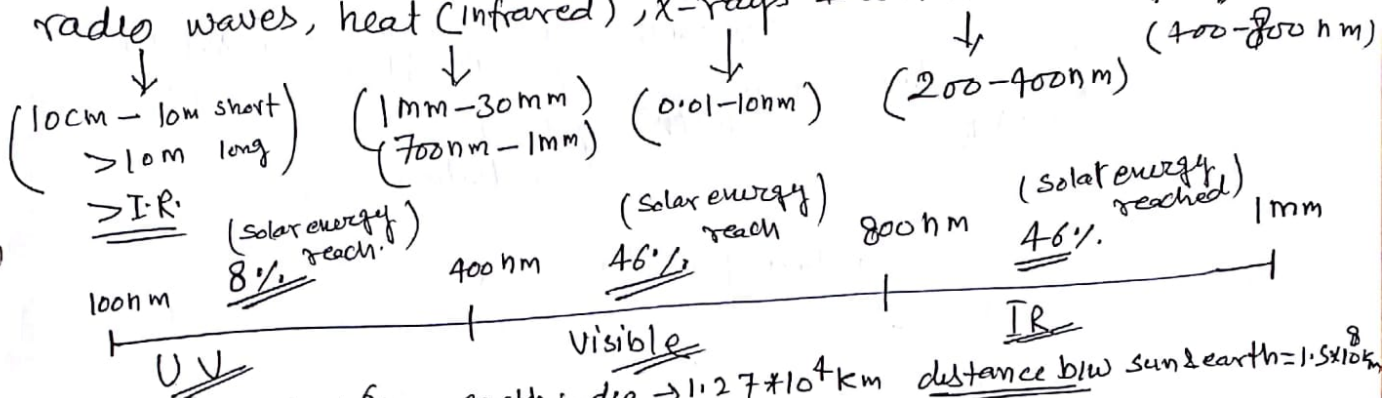 radio waves, heat (infrared), x-rays
(400-800nm)
(10cm - 10m short) (1mm-30mm) (0.01-10nm) (200-400nm)
>10m long (700nm-1mm)
>I.R.
(solar energy reach.) (solar energy reach) (solar energy reached)
100nm 8% 400nm 46% 800nm 46% 1mm
UV Visible IR
dia → 1.27*10⁴km distance b/w sun & earth=1.5x10⁸km